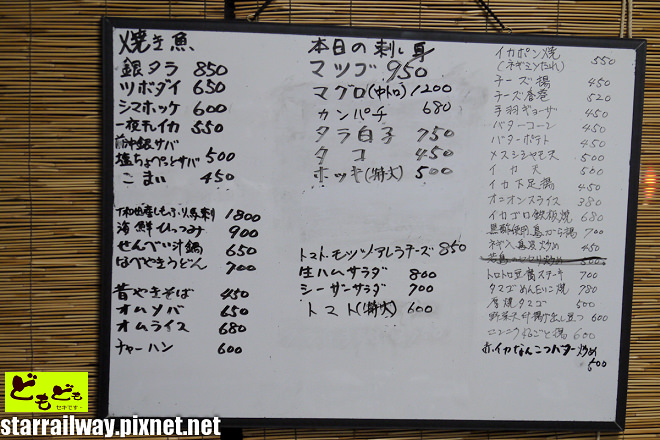 焼き魚
銀タラ 850
ツボダイ 650
シマホッケ 600
一夜干イカ 550
前沖銀サバ
塩ちょぺっとサバ 500
こまい 450
十和田産しもふり馬刺 1800
海鮮ひっつみ 900
せんべい汁鍋 650
はべやきうどん 700
昔やきそば 450
オムソバ 650
オムライス 680
チャーハン 600
本日の刺し身
マツブ 950
マグロ(中トロ) 1200
カンパチ 680
タラ白子 750
タコ 450
ホッキ(特大) 500
トマト・モッツァレラチーズ 850
生ハムサラダ 800
シーザーサラダ 700
トマト(特大) 600
イカポン焼 550
チーズ揚 450
チーズ春巻 520
手羽ギョーザ 450
バターコーン 450
バターポテト 450
メスシシャモ天 500
イカ天 500
イカ下足揚 450
オニオンスライス 380
イカゴロ鉄板焼 680
黒酢使用鳥から揚 700
ネギ入鳥皮炒め 450
トロトロ豆腐ステーキ 700
タマゴめんたいこ焼 780
厚焼タマゴ 500
野菜天 揚げ出し豆つ 600
ニンニク丸ごと揚 600
赤イカなんこつバター炒め
500
どもども
セキです
starrailway.pixnet.net